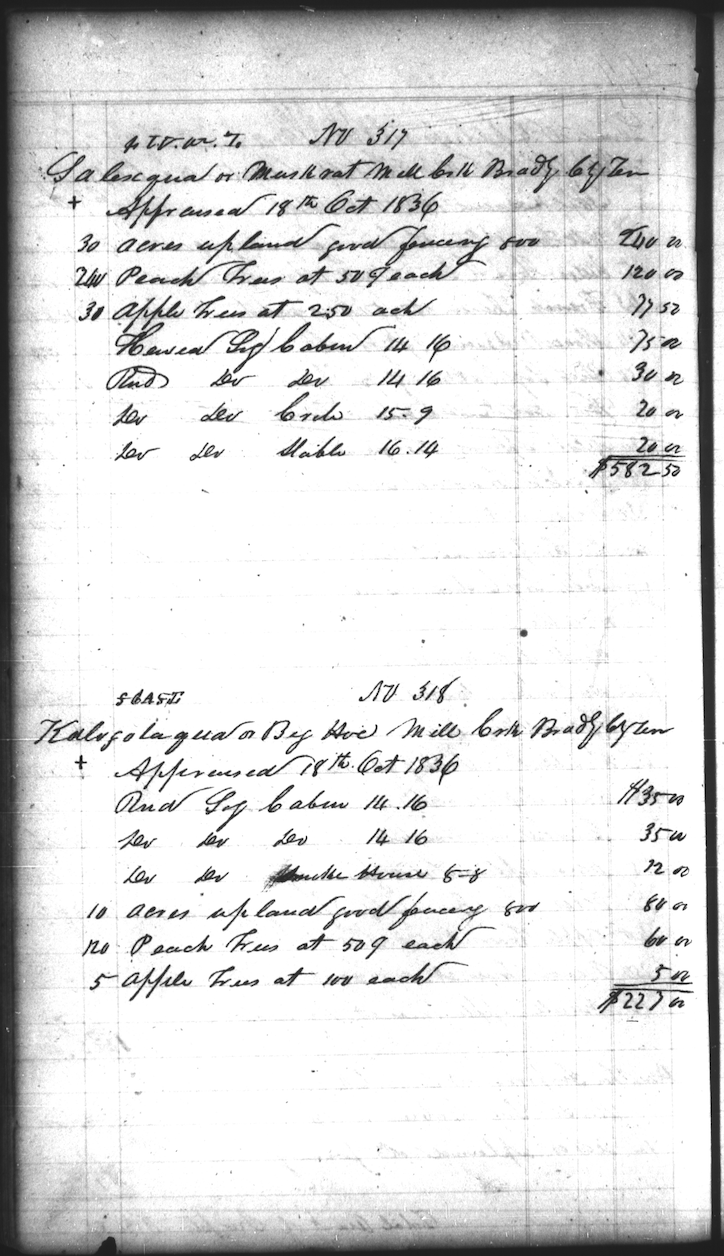 No 317
Salesequa or Muskrat Mill Crk Bradly Cty Ten
+ Appraised 18th Oct 1836
30 acres upland good fencing 800 240 00
240 Peach Trees at 50¢ each 120 00
30 Apple Trees at 2.50 ach 77 50
Hewed Log Cabin 14 16 75 00
Rnd Do Do 14 16 30 00
Do Do Crib 15-9 20 00
Do Do Stable 16.14 20 00
$582 50
No 318
Kalogolaqua or Big Hoe Mill Crk Bradly Cty Ten
+ Appraised 18th Oct 1836
Rnd Log Cabin 14.16 $35 00
Do Do Do 14 16 35 00
Do Do Smoke House 8-8 12 00
10 acres upland good fencing 800 80 00
120 Peach Trees at 50¢ each 60 00
5 Apple Trees at 100 each 5 00
$227 00